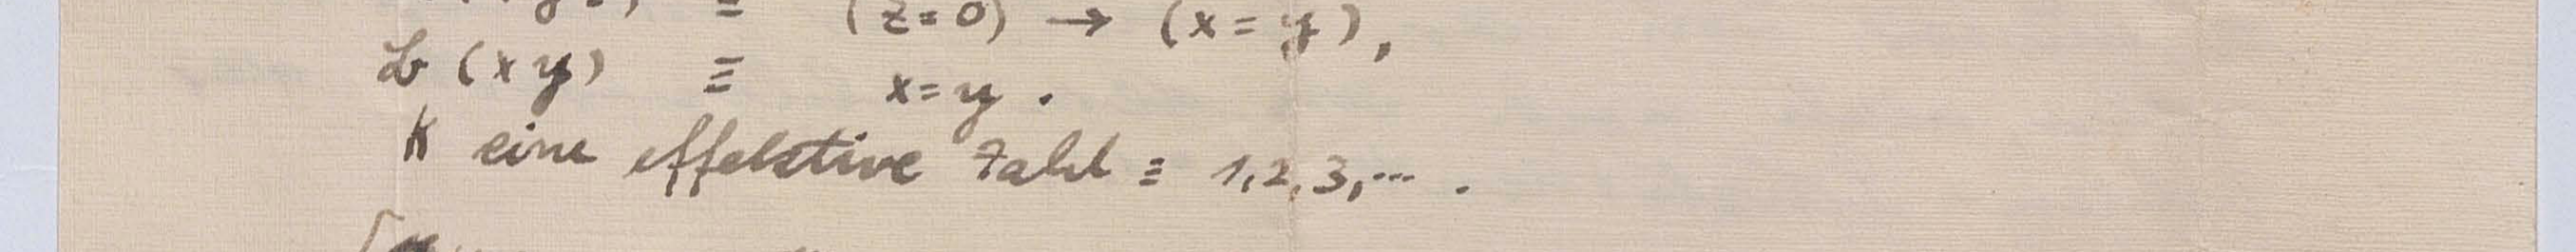 ≡ (z=0) → (x=y),
b (xy) ≡ x=y.
K eine effektive Zahl ≡ 1,2,3,... .